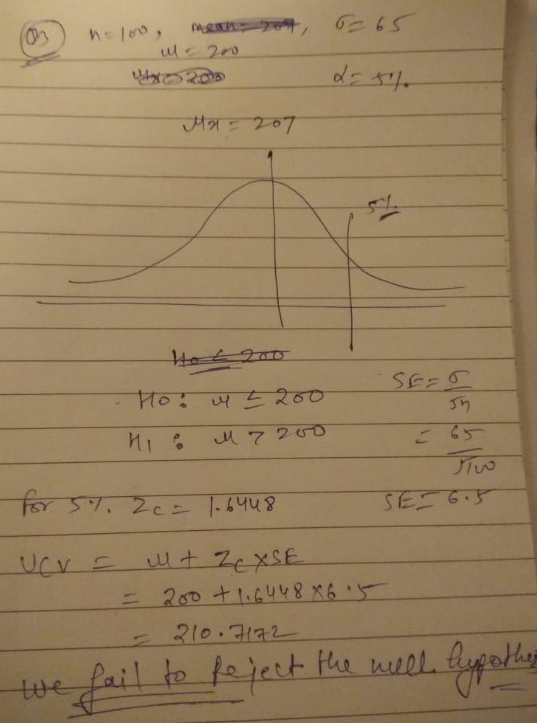 Q3 n=100, mean = 207, σ=65
μ=200
μx=200 α=5%
μx = 207
5%
H0 ≤ 200
H0: μ ≤ 200 SE = σ/√n
H1: μ > 200 = 65/√100
for 5% Zc = 1.6448 SE = 6.5
UCV = μ + Zc×SE
= 200 + 1.6448×6.5
= 210.7172
We fail to Reject the null hypothes